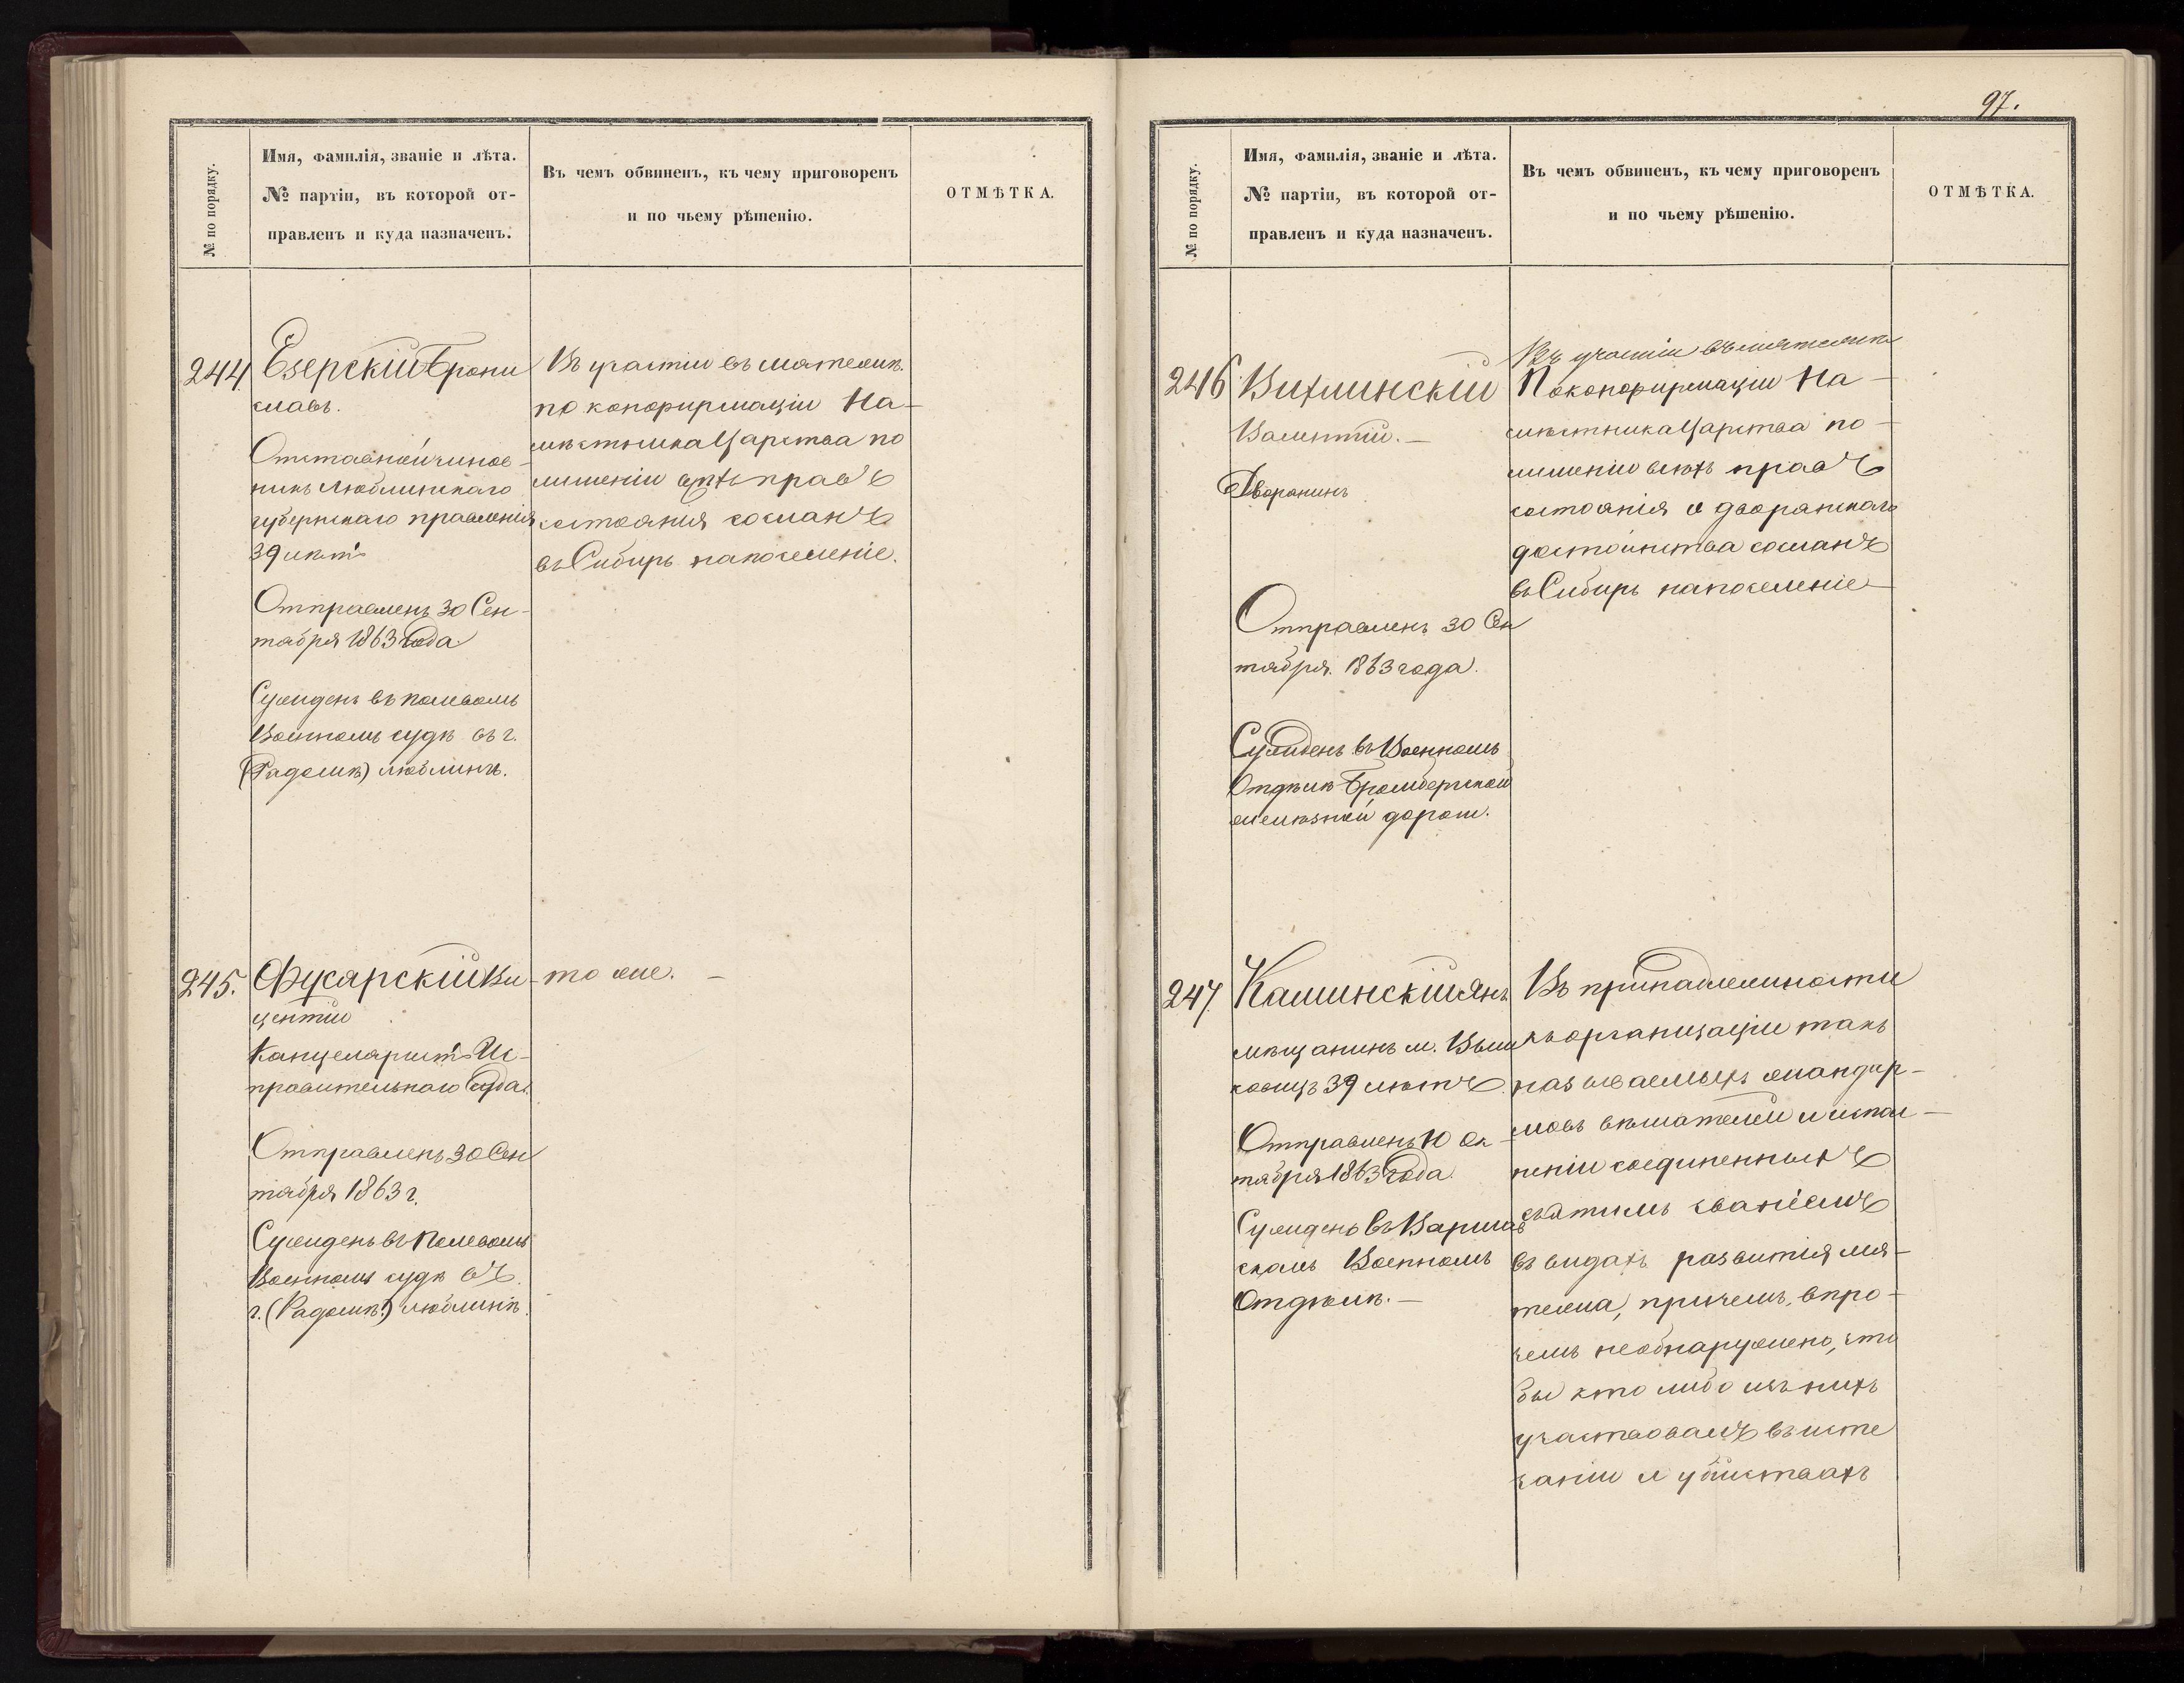 № по порядку.
Имя, фамилія, званіе и лѣта.
№ партіи, въ которой от-
правленъ и куда назначенъ.
Въ чемъ обвиненъ, къ чему приговоренъ
и по чьему рѣшенію.
ОТМѢТКА.
244
Езерскій Брони
славъ.
Отставной чинов-
никъ Люблинскаго
губернскаго правленія
39 лѣтъ
Отправленъ 30 Сен-
тября 1863 года
Сужденъ въ полевомъ
Военномъ судѣ въ г.
(Радомѣ) Люблинѣ.
Въ участіи въ мятежѣ.
по конфирмаціи На-
мѣстника Царства по
лишеніи всѣхъ правъ
состоянія сосланъ
въ Сибирь на поселеніе.
245.
Фусарскій Ви-
центій
Канцеляристъ Ис-
правительнаго Суда.
Отправленъ 30 Сен
тября 1863 г.
Сужденъ въ Полевомъ
Военномъ судѣ въ
г. (Радомѣ) Люблинѣ.
то же. -
97.
№ по порядку.
Имя, фамилія, званіе и лѣта.
№ партіи, въ которой от-
правленъ и куда назначенъ.
Въ чемъ обвиненъ, къ чему приговоренъ
и по чьему рѣшенію.
ОТМѢТКА.
246
Вихлинскій
Валентій. -
Дворянинъ
Отправленъ 30 Сен
тября. 1863 года.
Сужденъ въ Военномъ
Отдѣлѣ Бромбергской
желѣзной дороги.
Въ участіи въ мятежѣ
По конфирмаціи На-
мѣстника Царства по-
лишеніи всѣхъ правъ
состоянія и дворянскаго
достоинства сосланъ
въ Сибирь на поселеніе
247.
Каминскій Янъ
мѣщанинъ м. Выш
ковицъ 39 лѣтъ.
Отправленъ 10 Ок-
тября 1863 года.
Сужденъ въ Варшав
скомъ Военномъ
Отдѣлѣ. -
Въ принадлежности
къ организаціи такъ
называемыхъ жандар-
мовъ вѣшателей и испол-
неніи соединенныхъ
съ этимъ званіемъ
въ видахъ развитія мя-
тежа, причемъ, впро-
чемъ не обнаружено, что
бы кто либо изъ нихъ
участвовалъ въ исте
заніи и убійствахъ